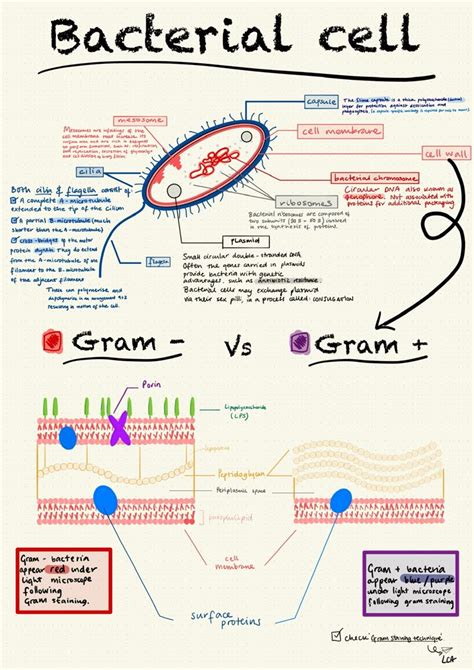 Bacterial cell
capsule
The slime capsule is a thick polysaccharide
layer for protection against desiccation and
mesosome
Mesosomes are infoldings of the
cell membrane
cell wall
cilia
bacterial chromosome
Circular DNA also known as
genophore. Not associated with
proteins for additional packaging
ribosomes
Bacterial ribosomes are composed of
two subunits (30S + 50S) involved
in the synthesis of proteins
Both cilia & flagella consist of:
A complete A-microtubule
extended to the tip of the Cilium
A partial B-microtubule (much
shorter than the A-microtubule)
cross-bridges of the motor
protein dynein. They do extend
from the A-microtubule of one
filament to the B-microtubule
of the adjacent filament
These can polymerise and
depolymerise in an arrangement 9+2
resulting in motion of the cell
flagella
plasmid
Small circular double-stranded DNA
Often the genes carried in plasmids
provide bacteria with genetic
advantages, such as antibiotic resistance
Bacterial cells may exchange plasmids
via their sex pili, in a process called CONJUGATION
Gram - vs Gram +
Porin
Lipopolysaccharide
(LPS)
Peptidoglycan
Periplasmic space
phospholipid
cell
membrane
surface
proteins
Gram - bacteria
appear red under
light microscope
following
Gram staining.
Gram + bacteria
appear blue/purple
under light microscope
following gram staining
check 'Gram staining technique'